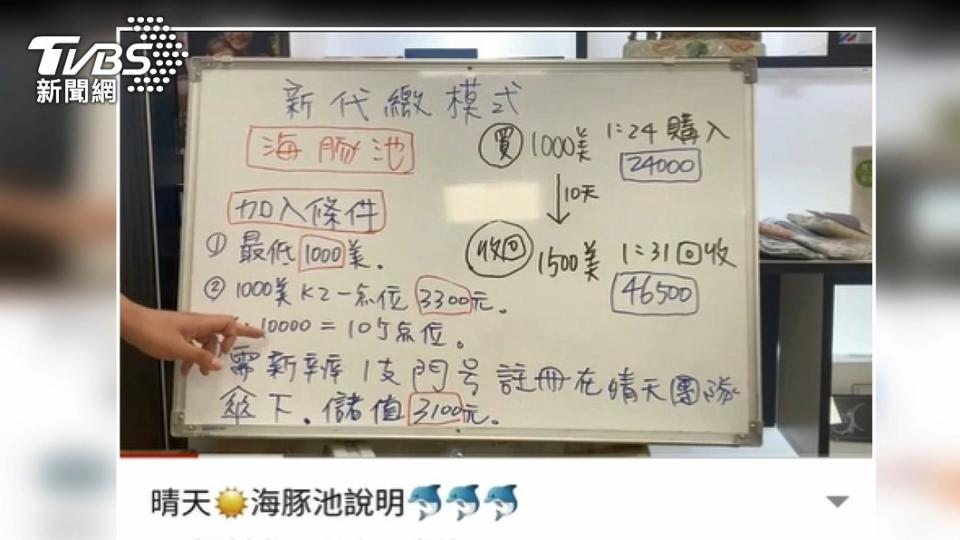 TVBS
新聞網
新代繳模式
海豚池
加入條件
① 最低1000美。
② 1000美K2一点位3300元。
10000=10个点位。
需新辦1支門号註冊在晴天團隊
傘下.儲值3100元。
買 1000美 1:24購入
24000
10天
收回 1500美 1:31回收
46500
晴天☀️海豚池說明🐬🐬🐬